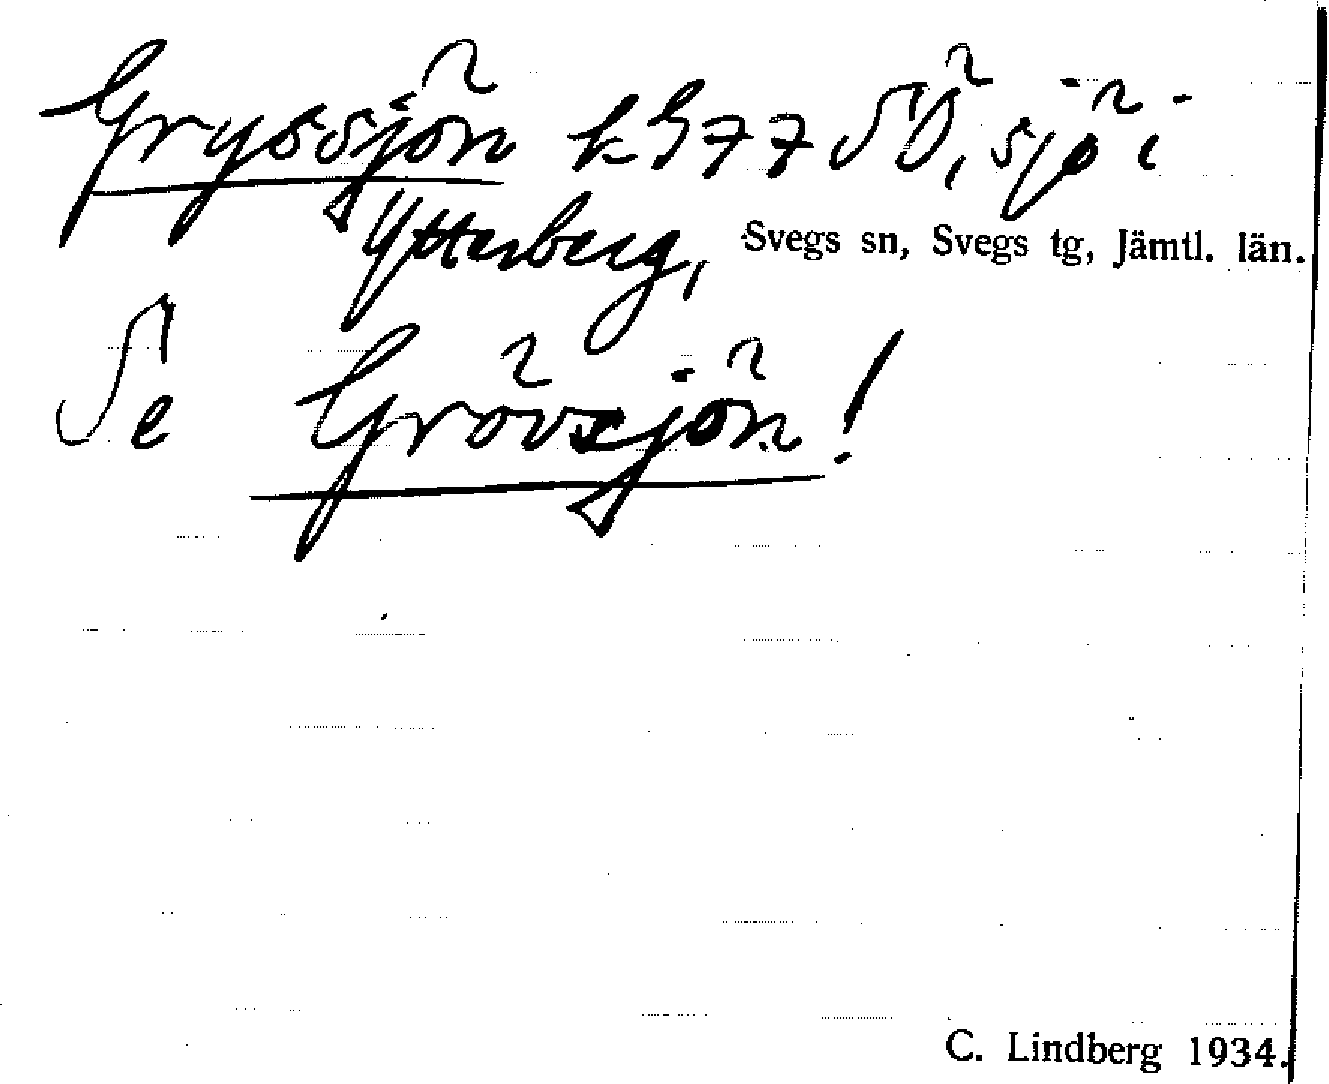 Gryssjön k 977 SÖ, sjö i
Ytterberg, Svegs sn, Svegs tg, Jämtl. län.
Se Grövsjön!
C. Lindberg 1934.